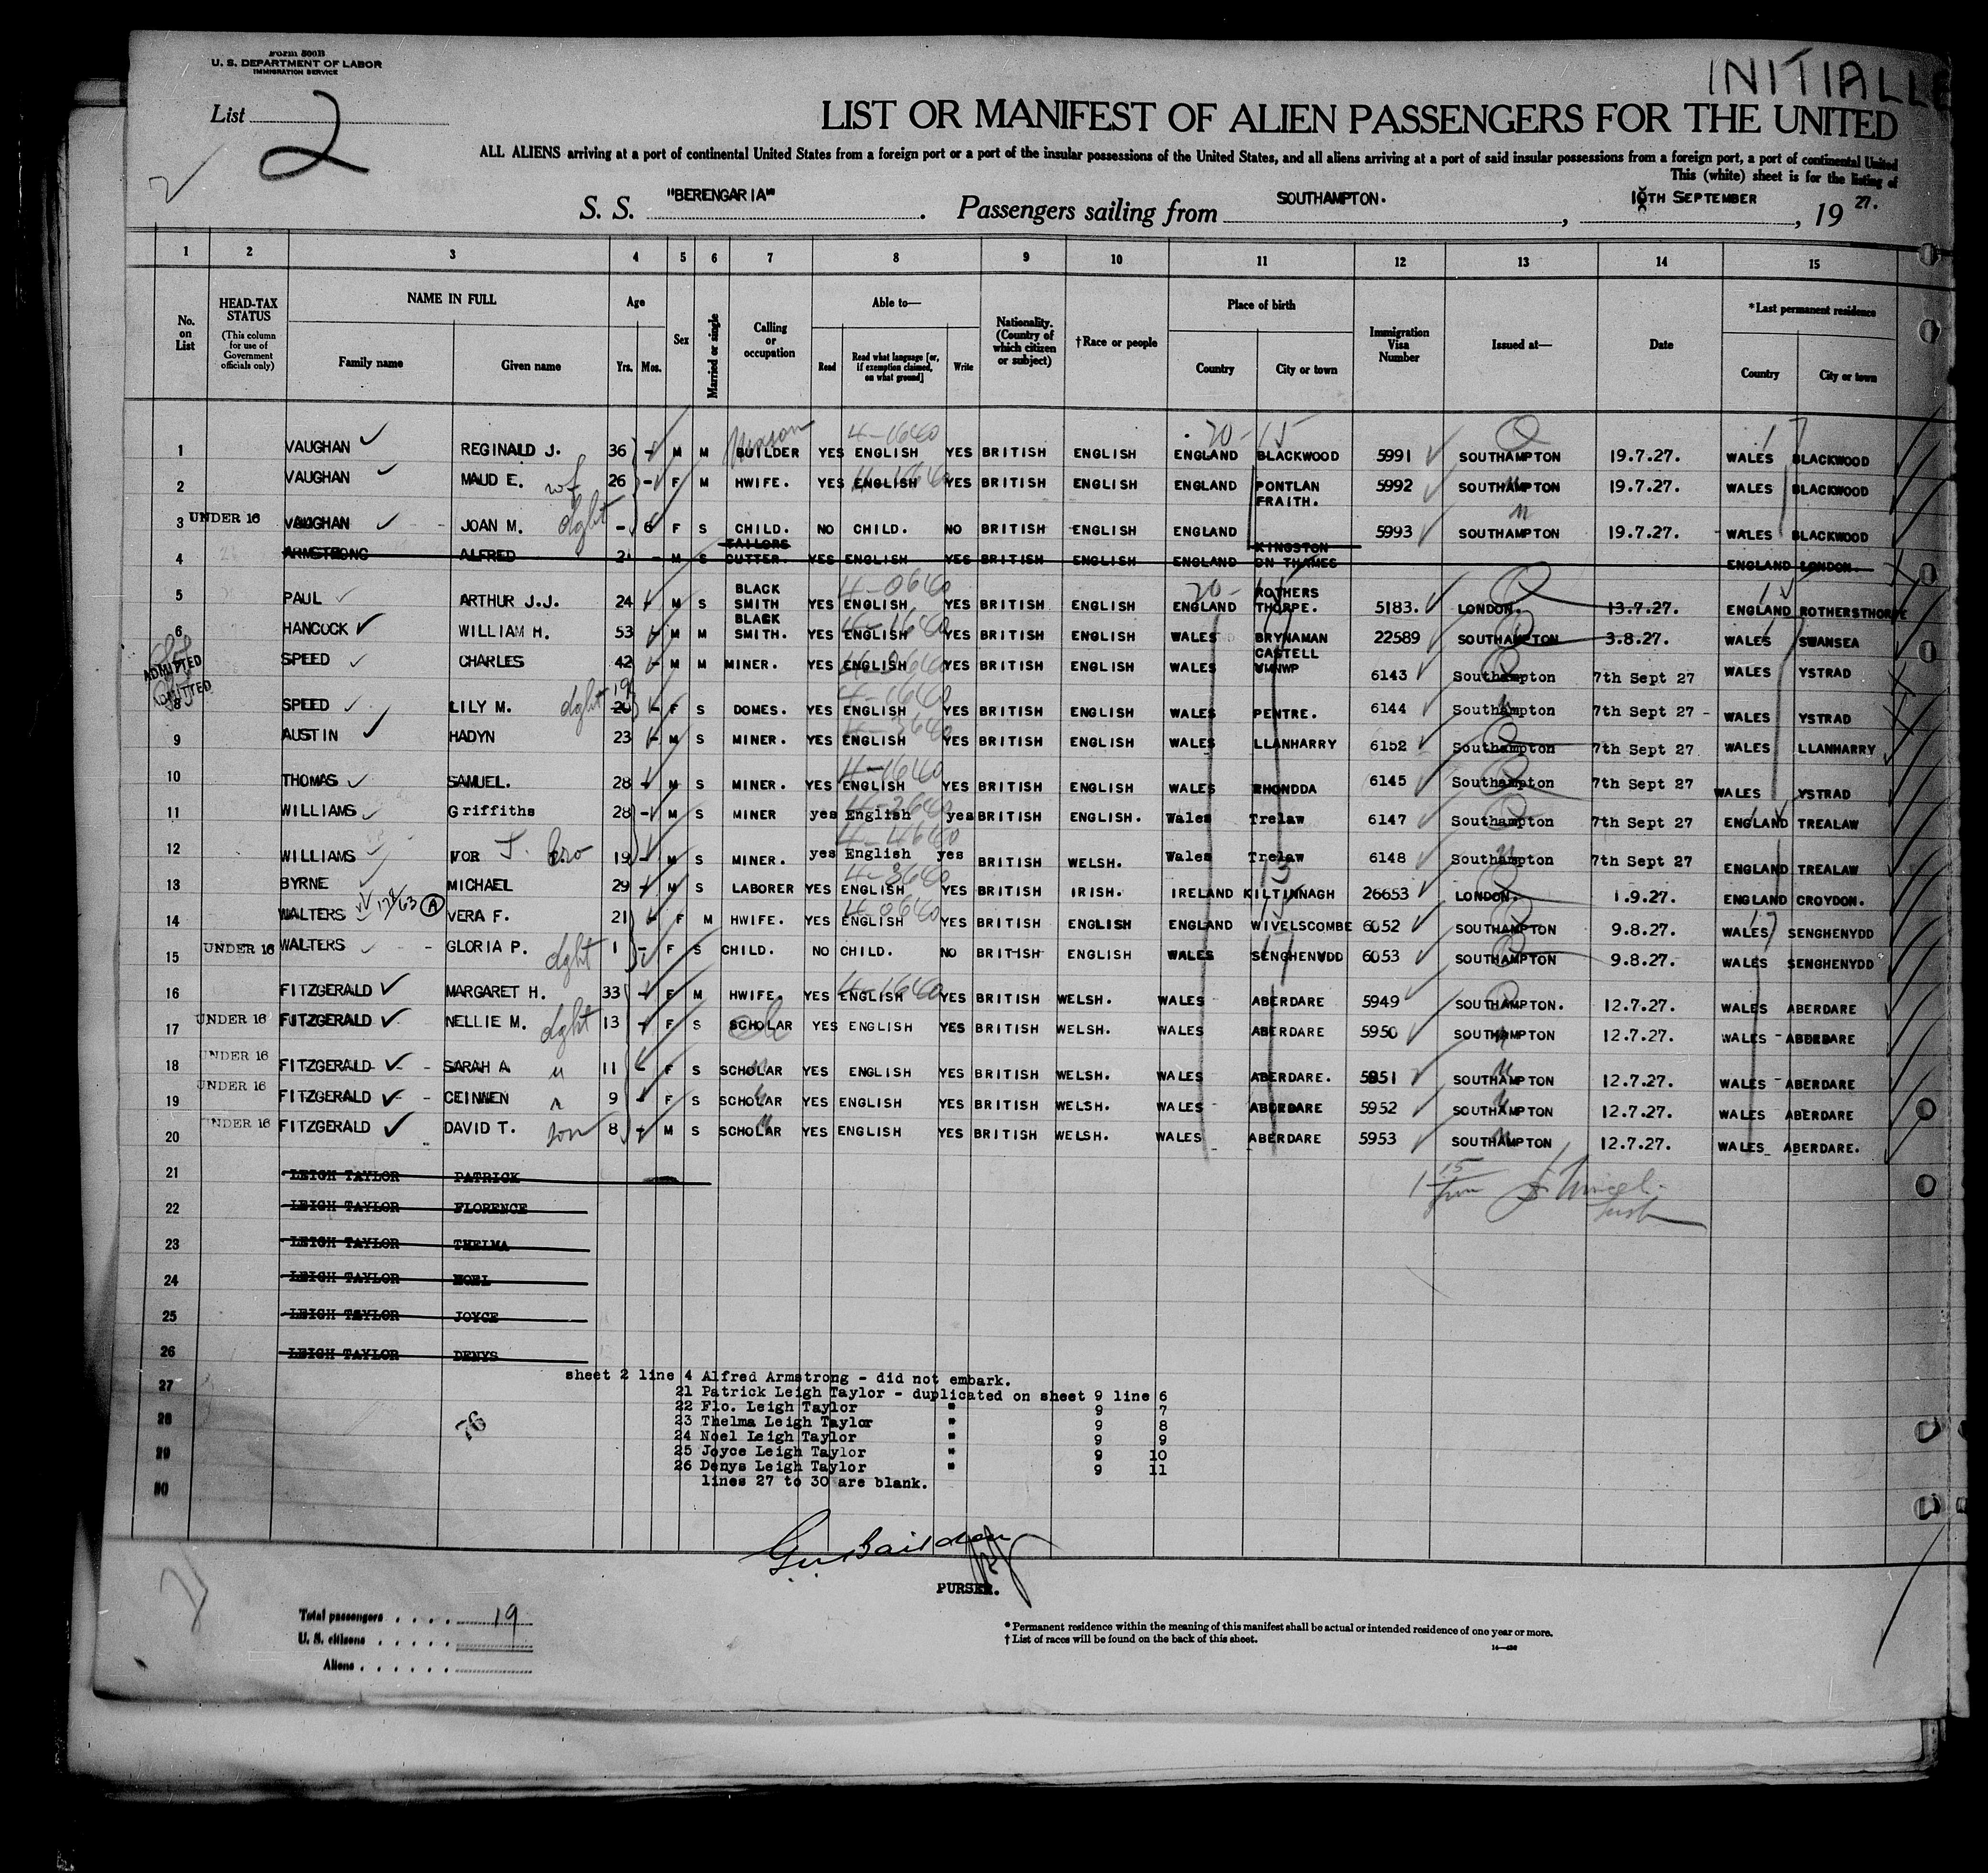 Form 500B
U. S. DEPARTMENT OF LABOR
IMMIGRATION SERVICE
INITIALLE
List 2
LIST OR MANIFEST OF ALIEN PASSENGERS FOR THE UNITED
ALL ALIENS arriving at a port of continental United States from a foreign port or a port of the insular possessions of the United States, and all aliens arriving at a port of said insular possessions from a foreign port, a port of continental United
This (white) sheet is for the listing of
S. S. "BERENGARIA". Passengers sailing from SOUTHAMPTON., 10TH SEPTEMBER, 19 27.
1 2 3 4 5 6 7 8 9 10 11 12 13 14 15
No. on List
HEAD-TAX STATUS
(This column for use of Government officials only)
NAME IN FULL
Family name
Given name
Age
Yrs. Mos.
Sex
Married or single
Calling or occupation
Able to—
Read
Read what language [or, if exemption claimed, on what ground]
Write
Nationality. (Country of which citizen or subject)
†Race or people
Place of birth
Country
City or town
Immigration Visa Number
Issued at—
Date
*Last permanent residence
Country
City or town
1 VAUGHAN REGINALD J. 36 - M M Mason BUILDER YES 4-1640 ENGLISH YES BRITISH ENGLISH ENGLAND BLACKWOOD 5991 SOUTHAMPTON 19.7.27. WALES BLACKWOOD
2 VAUGHAN MAUD E. wf 26 - F M HWIFE. YES ENGLISH YES BRITISH ENGLISH ENGLAND PONTLAN FRAITH. 5992 SOUTHAMPTON 19.7.27. WALES BLACKWOOD
3 UNDER 16 VAUGHAN JOAN M. dght - 6 F S CHILD. NO CHILD. NO BRITISH ENGLISH ENGLAND 5993 SOUTHAMPTON 19.7.27. WALES BLACKWOOD
4 ARMSTRONG ALFRED 21 - M S TAILORS CUTTER. YES ENGLISH YES BRITISH ENGLISH ENGLAND KINGSTON ON THAMES ENGLAND LONDON.
5 PAUL ARTHUR J.J. 24 - M S BLACK SMITH YES 4-0640 ENGLISH YES BRITISH ENGLISH ENGLAND ROTHERS THORPE. 5183. LONDON. 13.7.27. ENGLAND ROTHERSTHORPE
6 HANCOCK WILLIAM H. 53 - M M BLACK SMITH. YES 4-1640 ENGLISH YES BRITISH ENGLISH WALES BRYNAMAN 22589 SOUTHAMPTON 3.8.27. WALES SWANSEA
7 ADMITTED SPEED CHARLES 42 - M M MINER. YES ENGLISH YES BRITISH ENGLISH WALES CASTELL 6143 Southampton 7th Sept 27 WALES YSTRAD
8 ADMITTED SPEED LILY M. dght 19 20 - F S DOMES. YES 4-1640 ENGLISH YES BRITISH ENGLISH WALES PENTRE. 6144 Southampton 7th Sept 27 - WALES YSTRAD
9 AUSTIN HADYN 23 - M S MINER. YES 4-3640 ENGLISH YES BRITISH ENGLISH WALES LLANHARRY 6152 Southampton 7th Sept 27 WALES LLANHARRY
10 THOMAS SAMUEL. 28 - M S MINER. YES 4-1640 ENGLISH YES BRITISH ENGLISH WALES RHONDDA 6145 Southampton 7th Sept 27 WALES YSTRAD
11 WILLIAMS Griffiths 28 - M S MINER yes 4-2640 English yes BRITISH ENGLISH. Wales Trelaw 6147 Southampton 7th Sept 27 ENGLAND TREALAW
12 WILLIAMS IVOR J. bro 19 - M S MINER. yes 4-4640 English yes BRITISH WELSH. Wales Trelaw 6148 Southampton 7th Sept 27 ENGLAND TREALAW
13 BYRNE MICHAEL 29 - M S LABORER YES 4-3640 ENGLISH YES BRITISH IRISH. IRELAND KILTINNAGH 26653 LONDON. 1.9.27. ENGLAND CROYDON.
14 WALTERS A VERA F. 21 - F M HWIFE. YES 4-0640 ENGLISH YES BRITISH ENGLISH ENGLAND WIVELSCOMBE 6052 SOUTHAMPTON 9.8.27. WALES SENGHENYDD
15 UNDER 16 WALTERS - GLORIA P. dght 1 - F S CHILD. NO CHILD. NO BRITISH ENGLISH WALES SENGHENYDD 6053 SOUTHAMPTON 9.8.27. WALES SENGHENYDD
16 FITZGERALD MARGARET H. 33 - F M HWIFE. YES 4-1640 ENGLISH YES BRITISH WELSH. WALES ABERDARE 5949 SOUTHAMPTON. 12.7.27. WALES ABERDARE
17 UNDER 16 FITZGERALD NELLIE M. dght 13 - F S SCHOLAR YES ENGLISH YES BRITISH WELSH. WALES ABERDARE 5950 SOUTHAMPTON 12.7.27. WALES ABERDARE
18 UNDER 16 FITZGERALD - SARAH A " 11 - F S SCHOLAR YES ENGLISH YES BRITISH WELSH. WALES ABERDARE. 5951 SOUTHAMPTON 12.7.27. WALES ABERDARE
19 UNDER 16 FITZGERALD - CEINWEN " 9 - F S SCHOLAR YES ENGLISH YES BRITISH WELSH. WALES ABERDARE 5952 SOUTHAMPTON 12.7.27. WALES ABERDARE
20 UNDER 16 FITZGERALD DAVID T. son 8 - M S SCHOLAR YES ENGLISH YES BRITISH WELSH. WALES ABERDARE 5953 SOUTHAMPTON 12.7.27. WALES ABERDARE.
21 LEIGH TAYLOR PATRICK
22 LEIGH TAYLOR FLORENCE
23 LEIGH TAYLOR THELMA
24 LEIGH TAYLOR NOEL
25 LEIGH TAYLOR JOYCE
26 LEIGH TAYLOR DENYS
sheet 2 line 4 Alfred Armstrong - did not embark.
27
21 Patrick Leigh Taylor - duplicated on sheet 9 line 6
22 Flo. Leigh Taylor " 9 7
28
23 Thelma Leigh Taylor " 9 8
24 Noel Leigh Taylor " 9 9
29
25 Joyce Leigh Taylor " 9 10
26 Denys Leigh Taylor " 9 11
lines 27 to 30 are blank.
30
76
PURSER.
Total passengers . . . . 19
U. S. citizens . . . . .
Aliens . . . . . .
* Permanent residence within the meaning of this manifest shall be actual or intended residence of one year or more.
† List of races will be found on the back of this sheet.